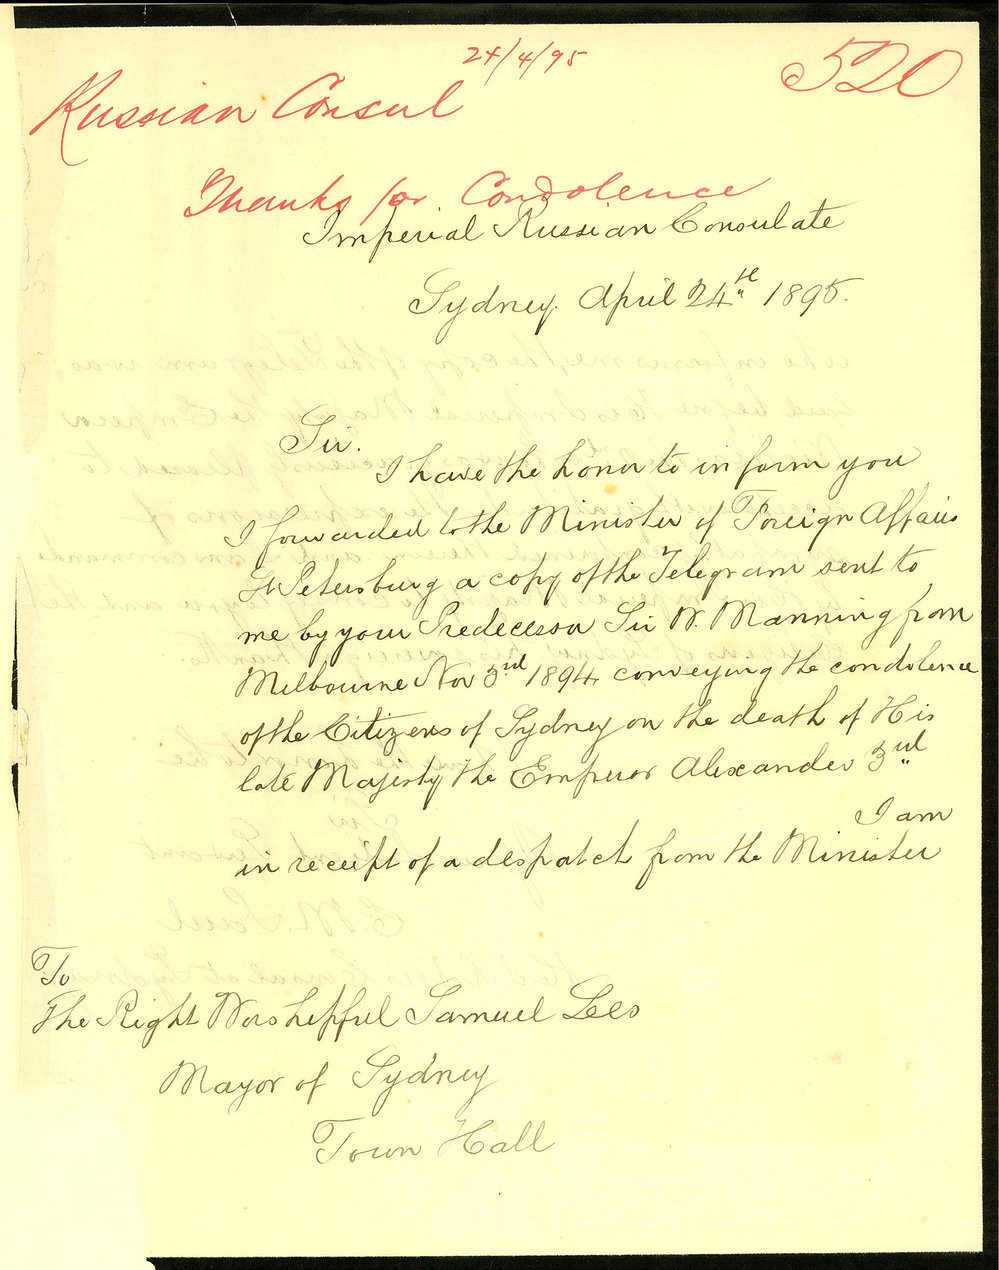 24/4/95
520
Russian Consul
Thanks for Condolence
Imperial Russian Consulate
Sydney. April 24th 1895.
Sir.
I have the honor to inform you
I forwarded to the Minister of Foreign Affairs
St Petersburg a copy of the Telegram sent to
me by your Predecessor Sir W. Manning from
Melbourne Nov 3rd 1894 conveying the condolence
of the Citizens of Sydney on the death of His
late Majesty the Emperor Alexander 3rd
I am
in receipt of a despatch from the Minister
To
The Right Worshipful Samuel Lees
Mayor of Sydney
Town Hall